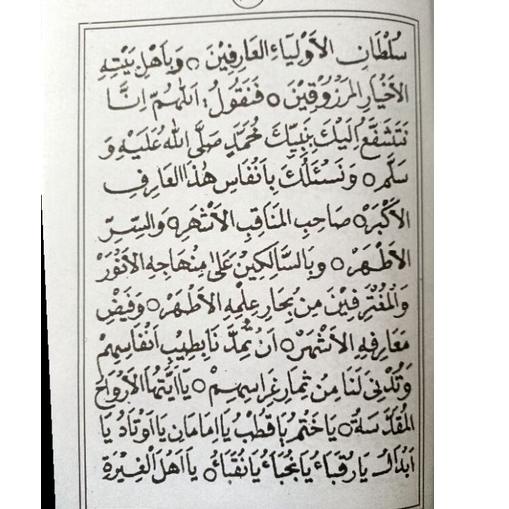 سُلْطَانِ الْأَوْلِيَاءِ الْعَارِفِيْنَ ○ وَبِأَهْلِ بَيْتِهِ
الْأَخْيَارِ الْمَرْزُوْقِيْنَ ○ فَنَقُوْلُ: اَللّٰهُمَّ اِنَّا
نَتَشَفَّعُ اِلَيْكَ بِنَبِيِّكَ مُحَمَّدٍ صَلَّى اللّٰهُ عَلَيْهِ وَ
سَلَّمَ ○ وَنَسْئَلُكَ بِاَنْفَاسِ هٰذَا الْعَارِفِ
الْأَكْبَرْ ○ صَاحِبِ الْمَنَاقِبِ الْأَشْهَرِ ○ وَالسِّرِّ
الْأَطْهَرْ ○ وَبِالسَّالِكِيْنَ عَلٰى مِنْهَاجِهِ الْأَنْوَرْ
وَالْمُغْتَرِفِيْنَ مِنْ بِحَارِ عِلْمِهِ الْأَطْهَرْ ○ وَفَيْضِ
مَعَارِفِهِ الْأَشْهَرْ ○ اَنْ تُمِدَّنَا بِطِيْبِ اَنْفَاسِهِمْ
وَتُدْنِيَ لَنَا مِنْ ثِمَارِ غِرَاسِهِمْ ○ يَا اَيَّتُهَا الْأَرْوَاحُ
الْمُقَدَّسَةُ ○ يَا خَتْمُ يَا قُطْبُ يَا اِمَامَانِ يَا اَوْتَادُ يَا
اَبْدَالُ يَا رُقَبَاءُ يَا نُجَبَاءُ يَا نُقَبَاءُ ○ يَا اَهْلَ الْغَيْرَةِ